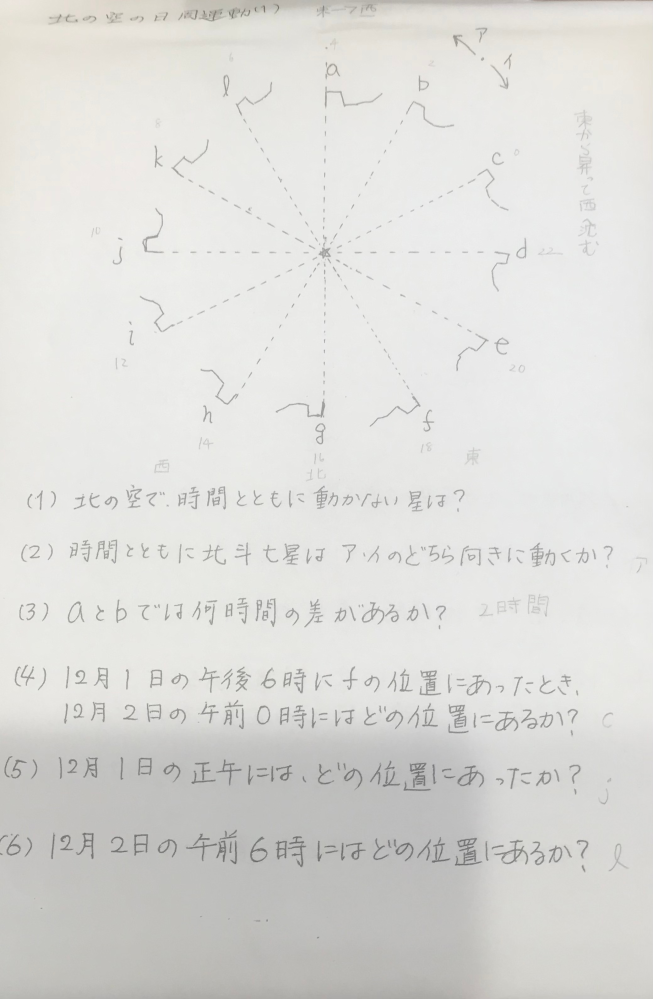 北の空の日周運動(1) 東→西
ア
イ
4
a
2
b
6
l
8
k
0
c
10
j
22
d
12
i
20
e
14
h
16
g
18
f
北
西
東
東から昇って西沈む
(1) 北の空で、時間とともに動かない星は?
(2) 時間とともに北斗七星はア・イのどちら向きに動くか? ア
(3) aとbでは何時間の差があるか? 2時間
(4) 12月1日の午後6時にfの位置にあったとき、
12月2日の午前0時にはどの位置にあるか? c
(5) 12月1日の正午には、どの位置にあったか? j
(6) 12月2日の午前6時にはどの位置にあるか? l